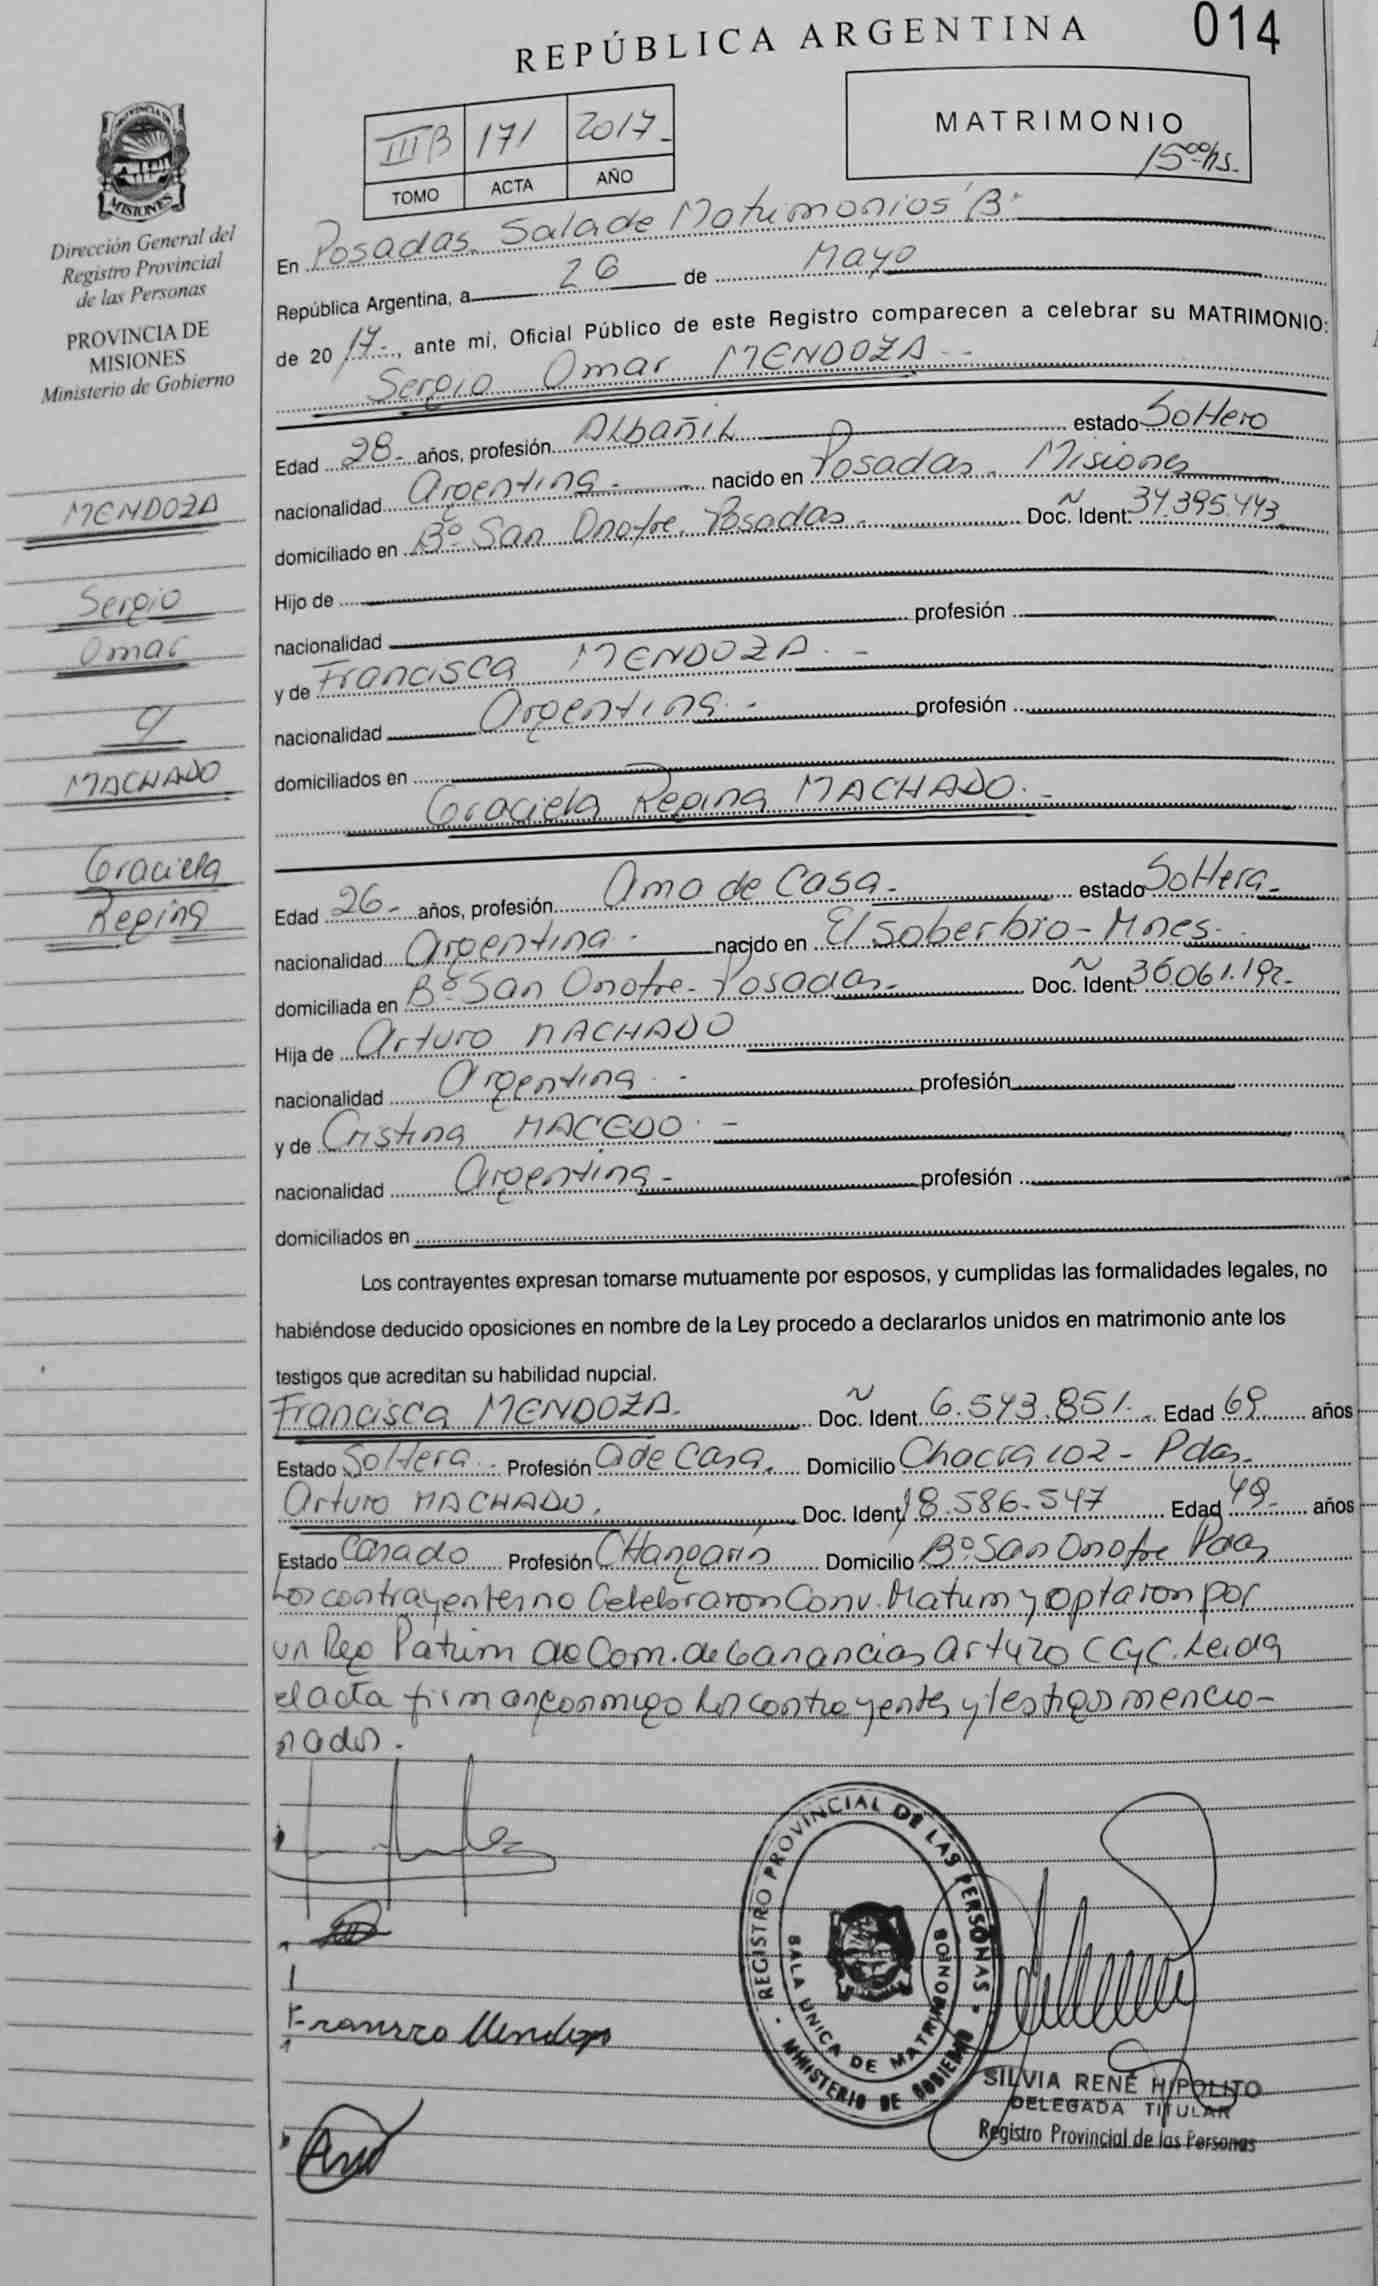 REPÚBLICA ARGENTINA
014
PROVINCIA DE
MISIONES
Dirección General del
Registro Provincial
de las Personas
PROVINCIA DE
MISIONES
Ministerio de Gobierno
MENDOZA
Sergio
Omar
c/
MACHADO
Graciela
Regina
III B 171 2017-
TOMO ACTA AÑO
MATRIMONIO
15 00 hs.
En Posadas, Sala de Matrimonios "B"
República Argentina, a 26 de Mayo
de 20 17-, ante mí, Oficial Público de este Registro comparecen a celebrar su MATRIMONIO:
Sergio Omar MENDOZA.-
Edad 28- años, profesión Albañil estado Soltero
nacionalidad Argentina.- nacido en Posadas. Misiones
domiciliado en Bº San Onofre. Posadas. Doc. Ident. 34.395.443
Hijo de
nacionalidad profesión
y de Francisca MENDOZA.-
nacionalidad Argentina.- profesión
domiciliados en
Graciela Regina MACHADO.-
Edad 26- años, profesión Ama de Casa- estado Soltera-
nacionalidad Argentina.- nacido en El Soberbio-Mnes.
domiciliada en Bº San Onofre-Posadas- Doc. Ident 36.061.192-
Hija de Arturo MACHADO
nacionalidad Argentina.- profesión
y de Cristina MACEDO.-
nacionalidad Argentina- profesión
domiciliados en
Los contrayentes expresan tomarse mutuamente por esposos, y cumplidas las formalidades legales, no
habiéndose deducido oposiciones en nombre de la Ley procedo a declararlos unidos en matrimonio ante los
testigos que acreditan su habilidad nupcial.
Francisca MENDOZA- Doc. Ident 6.543.851- Edad 69 años
Estado Soltera.- Profesión A de Casa. Domicilio Chacra 102-Pdas.
Arturo MACHADO. Doc. Ident 18.586.547 Edad 49- años
Estado Casado Profesión CHangarín Domicilio Bº San Onofre Pdas
Los contrayentes no Celebraron Conv. Matrim y optaron por
un Reg Patrim de Com. de Ganancias Art 420 CCyC. Leida
el acta firman conmigo los contrayentes y testigos mencio-
nados.-
REGISTRO PROVINCIAL DE LAS PERSONAS
SALA UNICA DE MATRIMONIOS
MINISTERIO DE GOBIERNO
SILVIA RENÉ HIPOLITO
DELEGADA TITULAR
Registro Provincial de las Personas